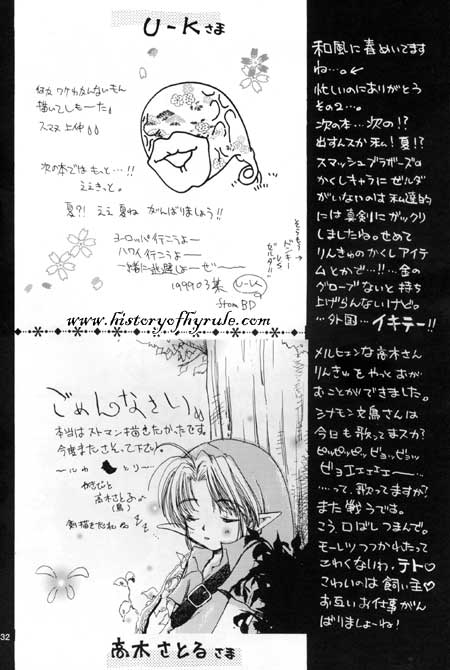 U-Kさま
何故ワケわかんないもん
描いてしもーた。
スマヌ上仲
次の本ではもっと…!!
ええきっと。
夏?! ええ 夏ね がんばりましょう!!
ヨーロッパ行こうよー
ハワイ行こうよー
199903
U-K
from BD
www.historyofhyrule.com
和風に春めいてます
ね…。
忙しいのにありがとう
その2…。
次の本…次の!?
出すんスか私!夏!?
スマッシュブラザーズの
かくしキャラにゼルダ
がいないのは私達的
には真剣にガックリ
しましたね。せめて
りんきゅのかくしアイテ
ムとかで…!!…金の
グローブないと持ち
上げらんないけど。
…外国…イキテー!!
ごめんなさい。
本当はストマン描きたかったです。
今度またさそって下さい。
高木さとる
(鳥)
メルヒェンな高木さん
りんきゅをやっとおが
むことができました。
シナモン文鳥さんは
今日も歌ってまスか?
ピッピッピッ ピョッピョッ
ピョエェェエー……
……って、歌ってますか?
また戦うでは。
こう口ばしつまんで。
モーレツつつかれたって
こわくないわ、テト♡
こわいのは飼い主♡
お互いお仕事がん
ばりましょーね!
32
高木さとるさま